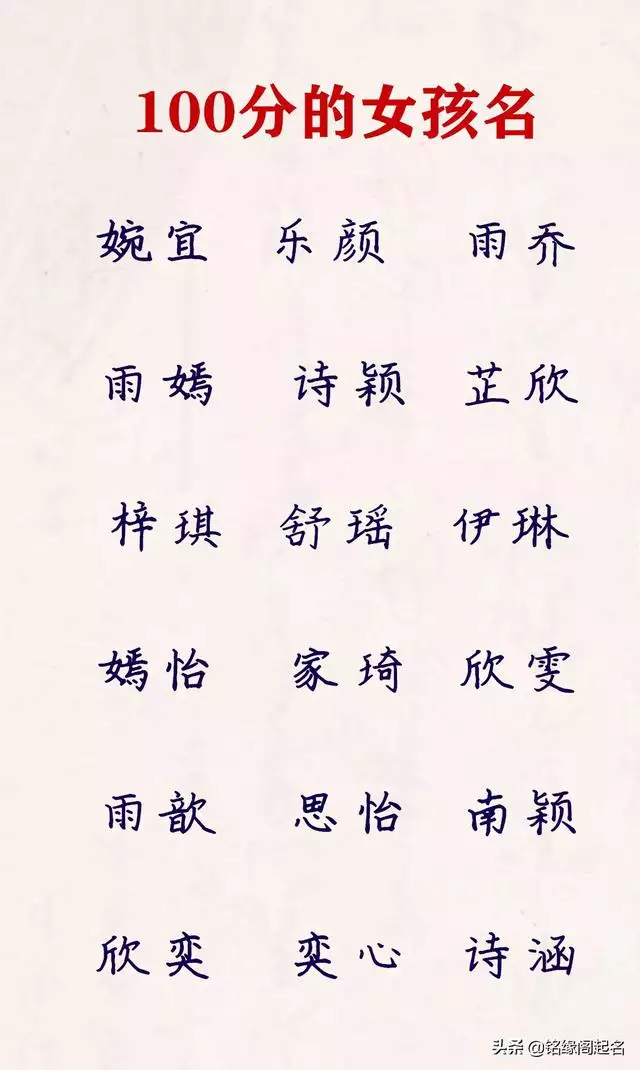 100分的女孩名
婉宜 乐颜 雨乔
雨嫣 诗颖 芷欣
梓琪 舒瑶 伊琳
嫣怡 家琦 欣雯
雨歆 思怡 南颖
欣奕 奕心 诗涵
头条 @铭缘阁起名